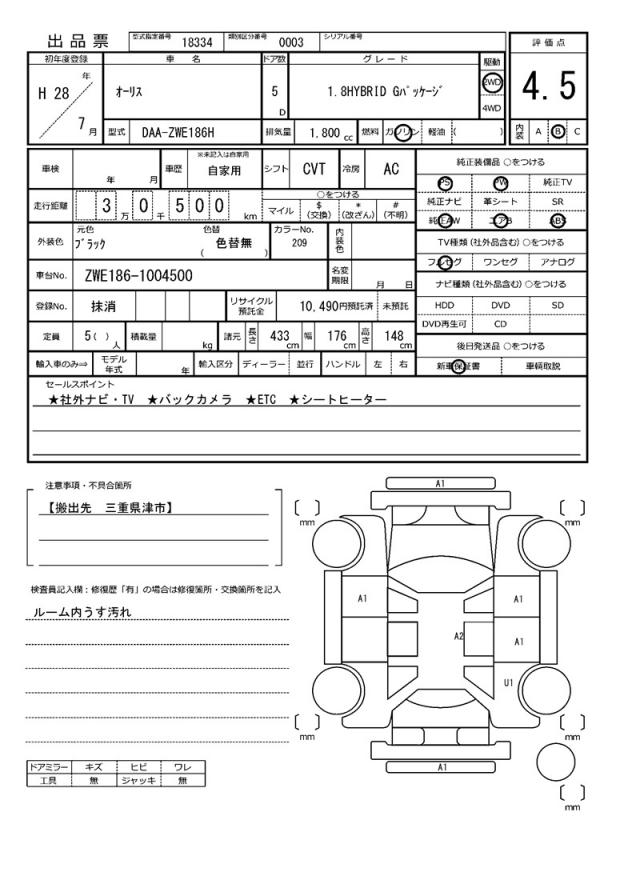 出品票 型式指定番号 18334 類別区分番号 0003 シリアル番号
評価点
4.5
初年度登録 車名 ドア数 グレード 駆動
H 28 年 7 月
オーリス 5 D 1.8HYBRID Gパッケージ 2WD
4WD
型式 DAA-ZWE186H 排気量 1.800 cc 燃料 ガソリン 軽油 ( )
内装 A B C
車検 年 月 車歴 ※未記入は自家用
自家用 シフト CVT 冷房 AC
純正装備品 ○をつける
PS PW 純正TV
純正ナビ 革シート SR
純正AW エアB ABS
走行距離 3 万 0 千 5 0 0 km
○をつける
マイル $ (交換) * (改ざん) # (不明)
外装色 元色 ブラック 色替 色替無 ( ) カラーNo. 209 内装色
TV種類 (社外品含む) ○をつける
フルセグ ワンセグ アナログ
車台No. ZWE186-1004500 名変期限 月 日
ナビ種類 (社外品含む) ○をつける
HDD DVD SD
DVD再生可 CD
登録No. 抹消 リサイクル預託金 10,490円預託済 未預託
定員 5 ( ) 人 積載量 kg 諸元 長さ 433 cm 幅 176 cm 高さ 148 cm
後日発送品 ○をつける
新車保証書 車輌取説
輸入車のみ⇒ モデル年式 年 輸入区分 ディーラー 並行 ハンドル 左 右
セールスポイント
★社外ナビ・TV ★バックカメラ ★ETC ★シートヒーター
注意事項・不具合箇所
【搬出先 三重県津市】
検査員記入欄：修復歴「有」の場合は修復箇所・交換箇所を記入
ルーム内うす汚れ
ドアミラー キズ ヒビ ワレ
工具 無 ジャッキ 無
A1
[ ] mm [ ] mm
A1 A1
A2 A1
U1
[ ] mm [ ] mm
A1
[ ] mm